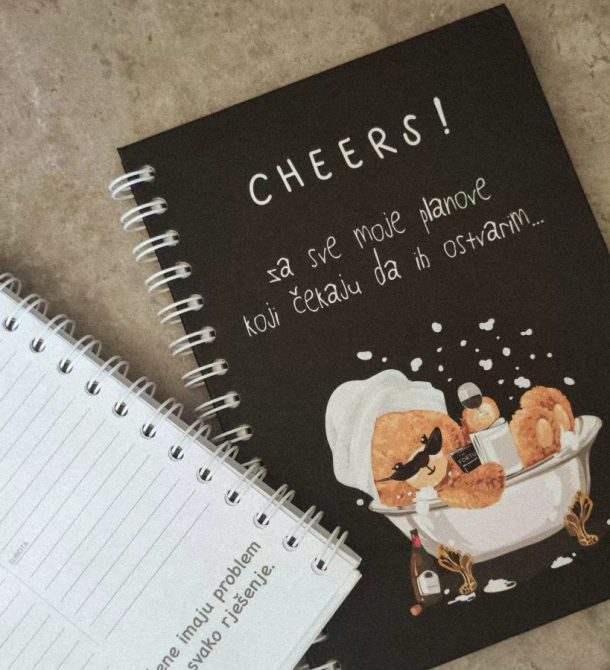 CHEERS!
za sve moje planove
koji čekaju da ih ostvarim...
SUBOTA
imaju problem
svako rješenje.